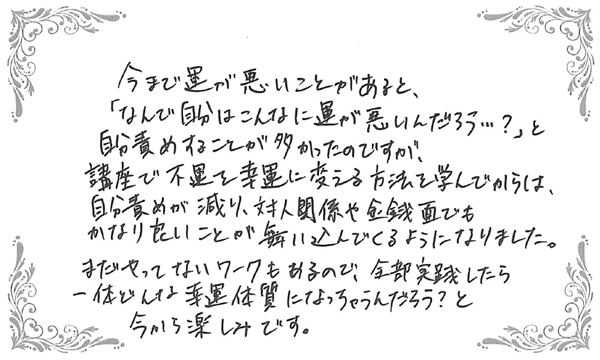 今まで運が悪いことがあると、
「なんで自分はこんなに運が悪いんだろう…?」と
自分責めすることが多かったのですが、
講座で不運を幸運に変える方法を学んでからは、
自分責めが減り、対人関係や金銭面でも
かなり良いことが舞い込んでくるようになりました。
まだやってないワークもあるので、全部実践したら
一体どんな幸運体質になっちゃうんだろう?と
今から楽しみです。